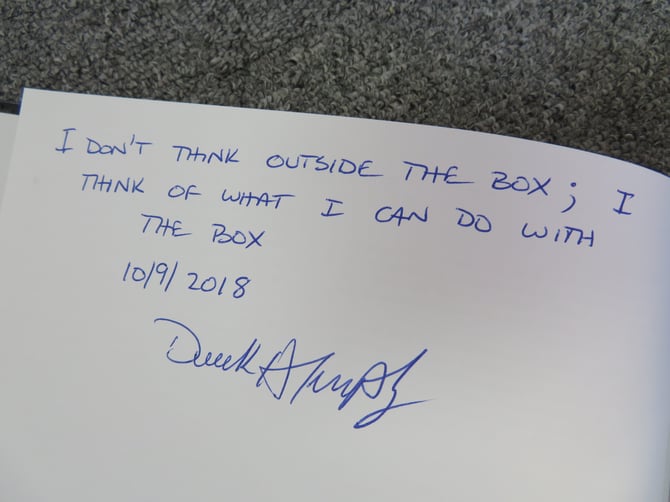 I DON'T THINK OUTSIDE THE BOX; I
THINK OF WHAT I CAN DO WITH
THE BOX
10/9/2018
Derek A Murphy